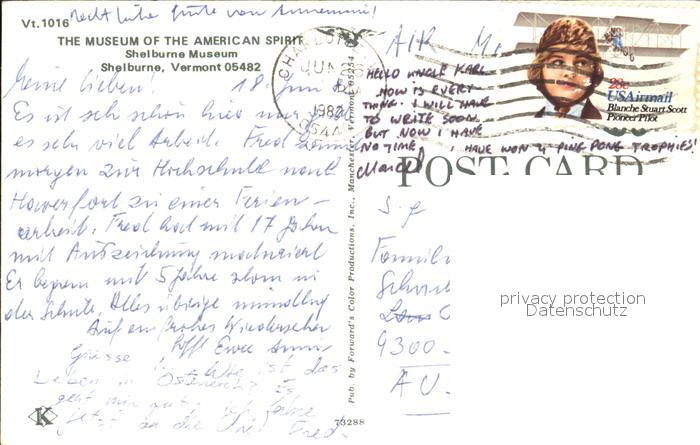 recht liebe Grüße von Annemarie!
Vt.1016
THE MUSEUM OF THE AMERICAN SPIRIT
Shelburne Museum
Shelburne, Vermont 05482
Meine Lieben! 18. Juni
Es ist sehr schön hier nur
es sehr viel Arbeit. Fred
morgen zur Hochschule nach
zu einer Ferien-
arbeit. Fred hat mit 17 Jahren
mit Auszeichnung maturiert
Er begann mit 5 Jahre schon in
der Schule. Alles übrige mündlich
Auf ein frohes Wiedersehen
Grüsse, Eure
Wie ist das
Leben in Österreich? Es
geht mir gut. ich fahre
jetzt an die Uni Fred.
K
73288
Pub. by Forward's Color Productions, Inc., Manchester, Vermont 05254
CHARLOTTE
JUN
1982
0544
AIR
28c
USAirmail
Blanche Stuart Scott
Pioneer Pilot
HELLO UNCLE KARL
HOW IS EVERY
THING. I WILL HAVE
TO WRITE SOON
BUT NOW I HAVE
NO TIME. I HAVE WON 4 PING PONG TROPHIES!
Marcel
POST CARD
Famili
9300-
AU.
privacy protection
Datenschutz